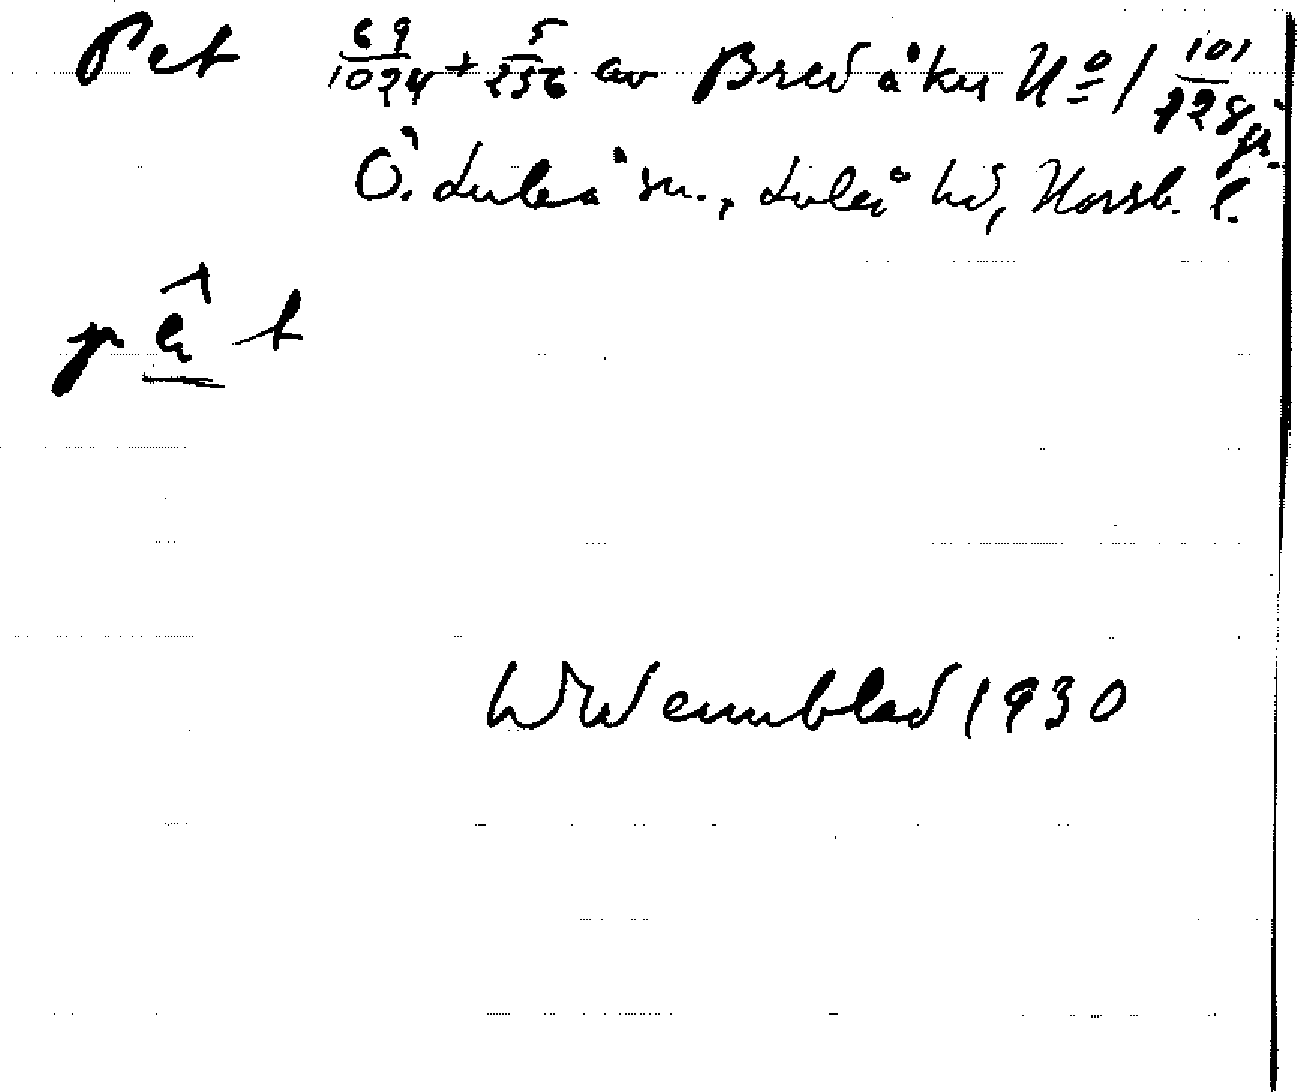 Pet 69/1024 + 5/256 av Bredåker No 1 101/128 gr.
Ö. Luleå sn., Luleå hd, Norrb. l.
W Wennblad 1930